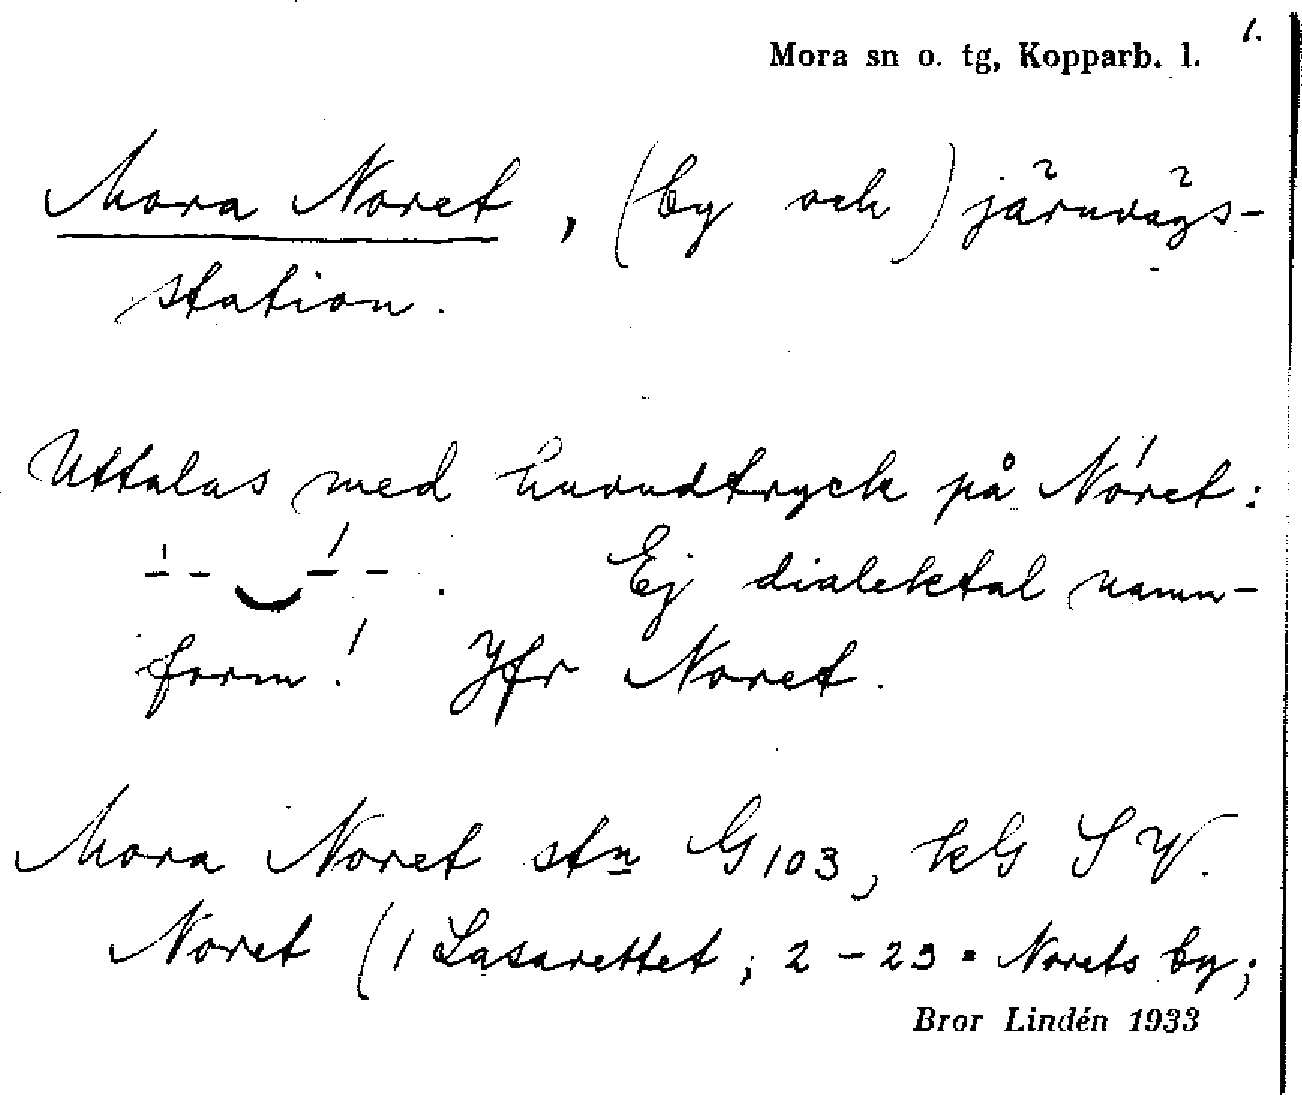 1.
Mora sn o. tg, Kopparb. l.
Mora Noret, (by och) järnvägs-
station.
Uttalas med huvudtryck på Nóret:
-́ - ‿ -́ - . Ej dialektal namn-
form! Jfr Noret.
Mora Noret stn G103, kG S V.
Noret (1 Lasarettet; 2-23 = Norets by;
Bror Lindén 1933